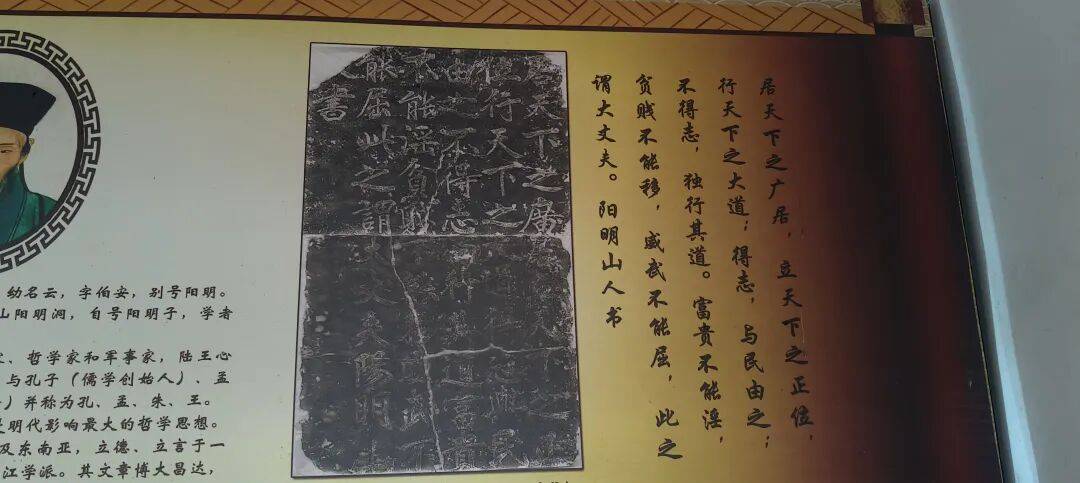 居天下之广居，立天下之正位，
行天下之大道；得志，与民由之；
不得志，独行其道。富贵不能淫，
贫贱不能移，威武不能屈，此之
谓大丈夫。阳明山人书
居天下之廣
位行天下之
由之不得志
不能淫貧賤
能屈此之謂
大丈夫陽明山
書
幼名云，字伯安，别号阳明。
山阳明洞，自号阳明子，学者
、哲学家和军事家，陆王心
与孔子（儒学创始人）、孟
）并称为孔、孟、朱、王。
是明代影响最大的哲学思想。
及东南亚，立德、立言于一
江学派。其文章博大昌达，